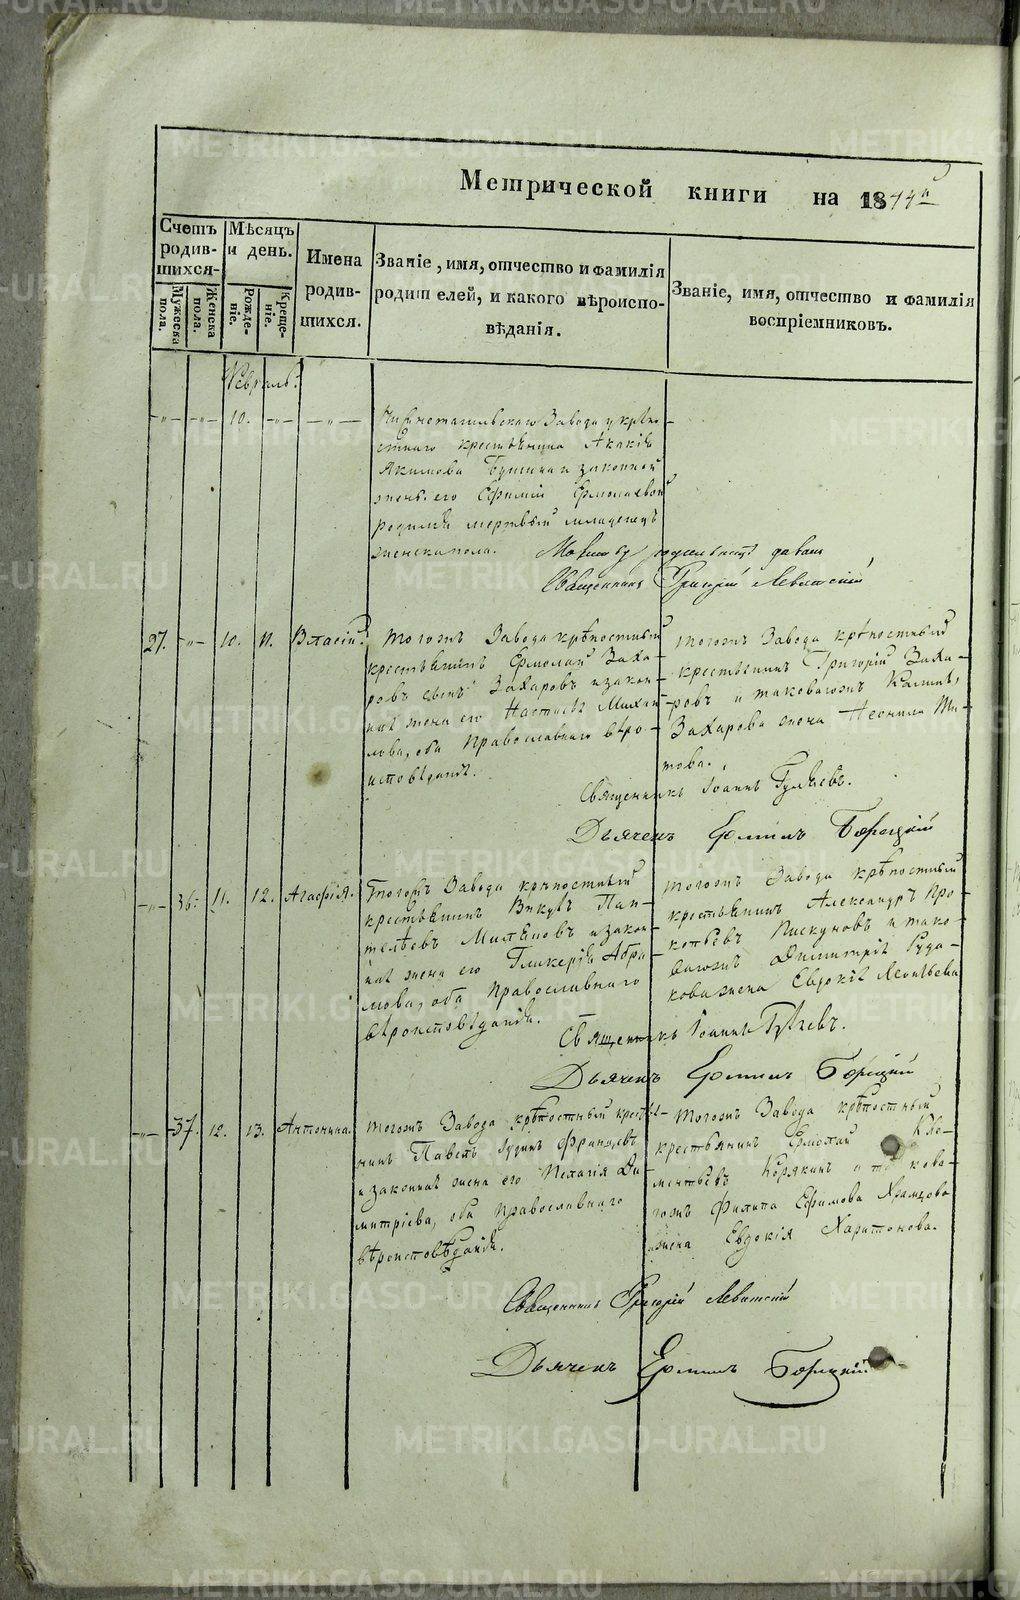 Метрической книги на 1844й
Счетъ родив-шихся.
Мѣсяцъ и день.
Имена родив-шихся.
Званіе, имя, отчество и фамилія
родителей, и какого вѣроиспо-
вѣданія.
Званіе, имя, отчество и фамилія
воспріемниковъ.
Мужеска пола.
Женска пола.
Рожде-ніе.
Креще-ніе.
Февраль.
—"— —"— 10. —"— —"—
Нижнетагильскаго Завода у крѣпо-
стнаго крестьянина Акакія
Якимова и законной
жены его Ефиміи Ермолаевой
родился мертвый младенецъ
женска пола.
Молитву родильницѣ давалъ
Священникъ Григорій Левитскій
27. —"— 10. 11. Власій.
Тогожъ Завода крѣпостный
крестьянинъ Ермолай Заха-
ровъ сынъ Захаровъ и закон-
ная жена его Настасья Михай-
лова, оба Православнаго вѣро-
исповѣданія.
Тогожъ Завода крѣпостный
крестьянинъ Григорій Заха-
ровъ и таковагожъ
Захарова жена Неонила Ти-
това.
Священникъ Іоаннъ
Дьячекъ Ермилъ Борецкій
—"— 36. 11. 12. Агафія.
Тогожъ Завода крѣпостный
крестьянинъ Викулъ Пан-
телѣевъ и закон-
ная жена его Гликерія Абра-
мова, оба Православнаго
вѣроисповѣданія.
Тогожъ Завода крѣпостный
крестьянинъ Александръ Про-
копьевъ Пискуновъ и тако-
вагожъ Димитрія Руда-
кова жена Евдокія Леонтьева
Священникъ Іоаннъ
Дьячекъ Ермилъ Борецкій
—"— 37. 12. 13. Антонина.
Тогожъ Завода крѣпостный крестья-
нинъ Павелъ
и законная жена его Пелагія Ди-
митріева, оба Православнаго
вѣроисповѣданія.
Тогожъ Завода крѣпостный
крестьянинъ Ермолай Кле-
ментьевъ Корякинъ и такова-
гожъ Филипа Ефимова Храмцова
жена Евдокія Харитонова.
Священникъ Григорій Левитскій
Дьячекъ Ермилъ Борецкій
METRIKI.GASO-URAL.RU